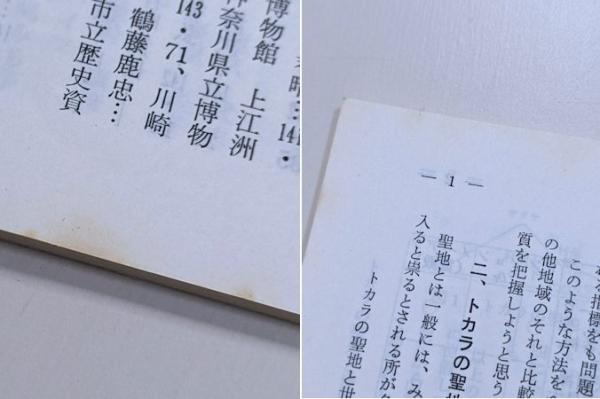 晴…141・
博物館　上江洲
奈川県立博物
143・71、川崎
鶴藤鹿忠…
市立歴史資
— 1 —
る指標をも問題
このような方法を
の他地域のそれと比較
質を把握しようと思う
二、トカラの聖地
聖地とは一般には、み
入ると祟るとされる所が
トカラの聖地と世